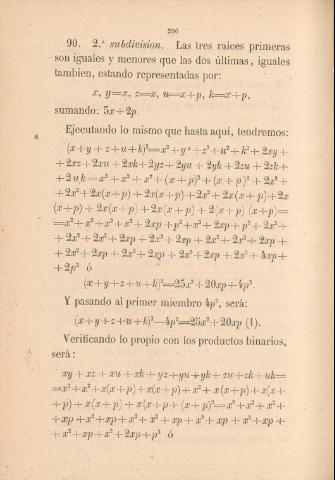 200
90. 2.ª subdivision. Las tres raices primeras
son iguales y menores que las dos últimas, iguales
tambien, estando representadas por:
x, y=x, z=x, u=x+p, k=x+p,
sumando: 5x+2p.
Ejecutando lo mismo que hasta aquí, tendremos:
(x+y+z+u+k)²=x²+y²+z²+u²+k²+2xy+
+2xz+2xu+2xk+2yz+2yu+2yk+2zu+2zk+
+2uk=x²+x²+x²+(x+p)²+(x+p)²+2x²+
+2x²+2x(x+p)+2x(x+p)+2x²+2x(x+p)+2x
(x+p)+2x(x+p)+2x(x+p)+2(x+p)(x+p)=
=x²+x²+x²+x²+2xp+p²+x²+2xp+p²+2x²+
+2x²+2x²+2xp+2x²+2xp+2x²+2x²+2xp+
+2x²+2xp+2x²+2xp+2x²+2xp+2x²+4xp+
+2p² ó
(x+y+z+u+k)²=25x²+20xp+4p².
Y pasando al primer miembro 4p², será:
(x+y+z+u+k)²—4p²=25x²+20xp (1).
Verificando lo propio con los productos binarios,
será:
xy+xz+xu+xk+yz+yu+yk+zu+zk+uk=
=x²+x²+x(x+p)+x(x+p)+x²+x(x+p)+x(x+
+p)+x(x+p)+x(x+p+(x+p)²=x²+x²+x²+
+xp+x²+xp+x²+x²+xp+x²+xp+x²+xp+
+x²+xp+x²+2xp+p² ó